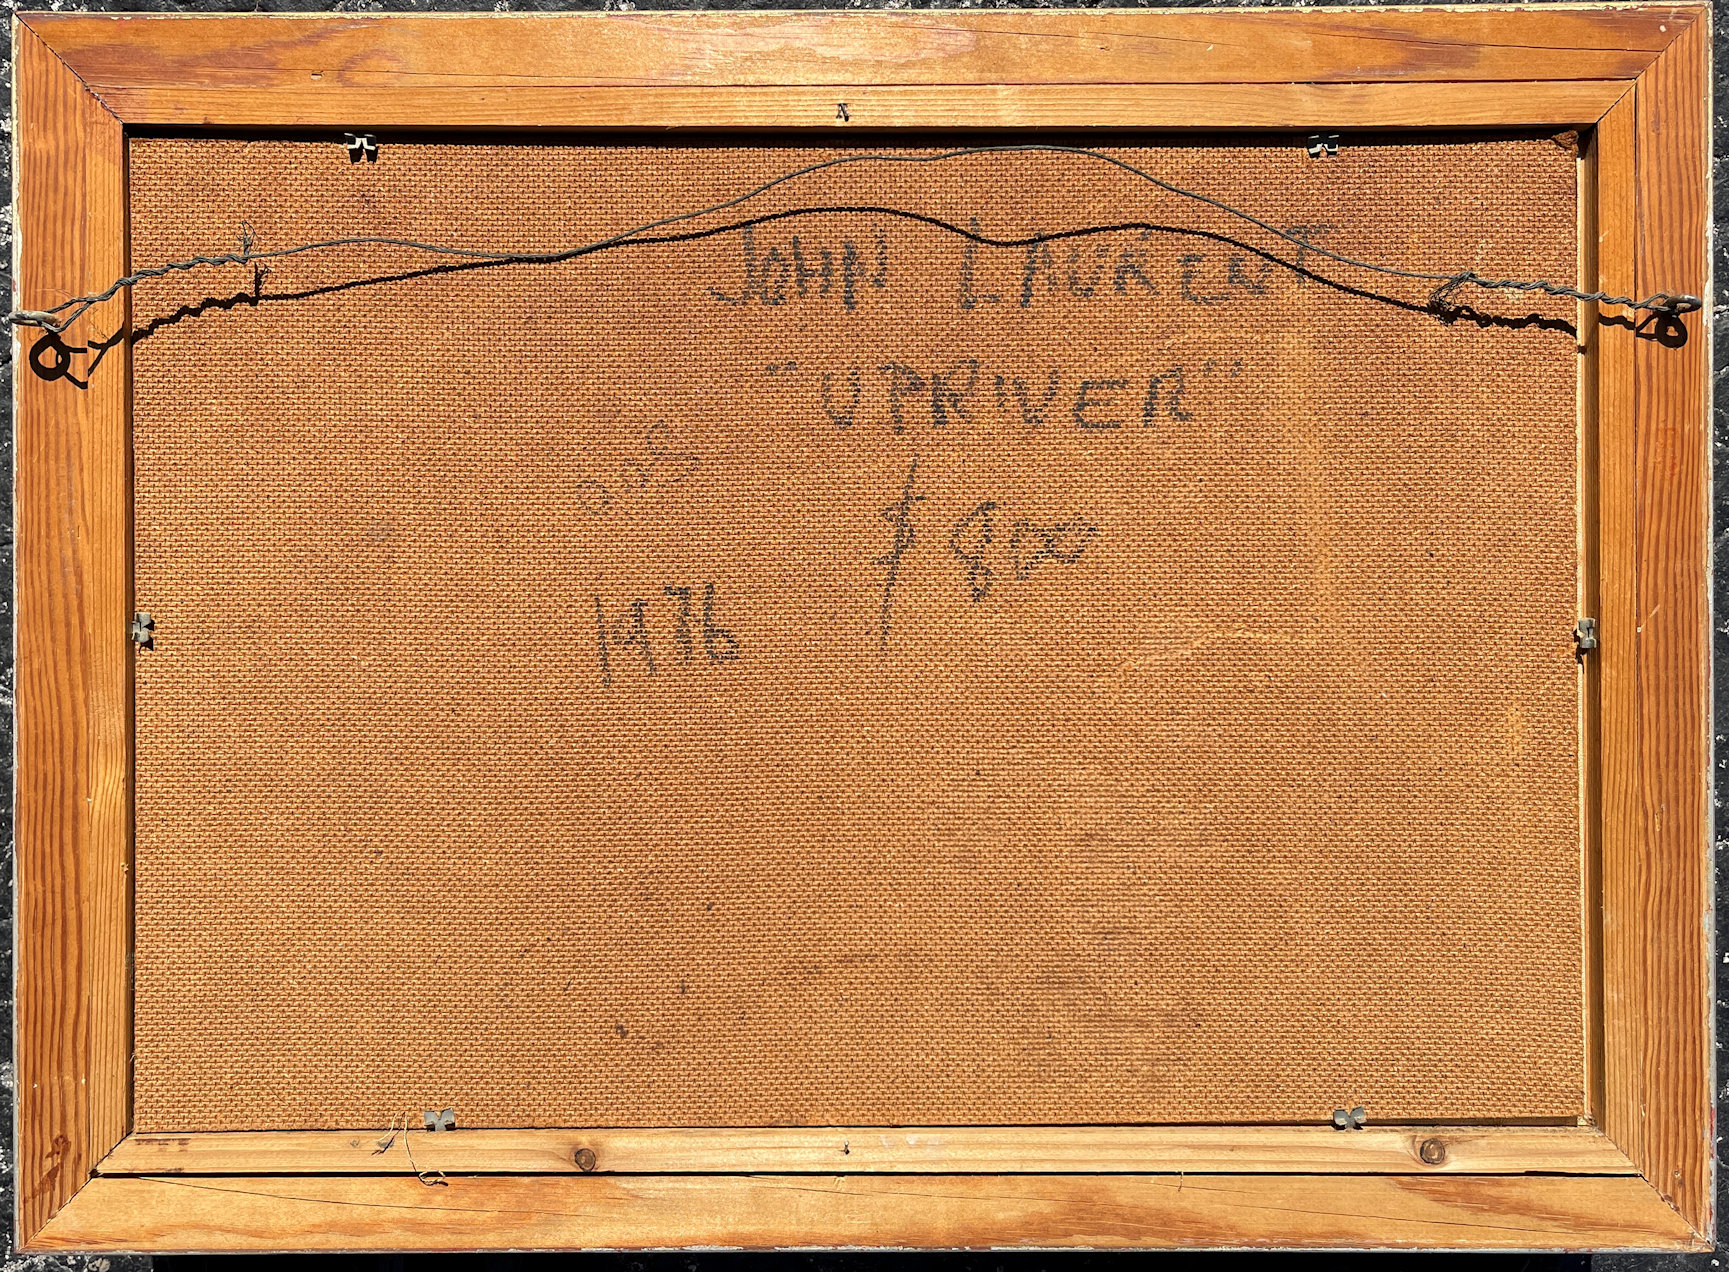 JOHN LAURENT
"UPRIVER"
500
$ 800
1976